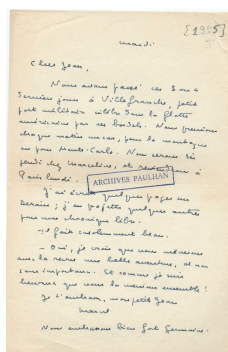 [1955]
mardi
Cher Jean,
Nous avons passé ces 3 ou 4
derniers jours à Villefranche, petit
port militaire célèbre dans la flotte
américaine par ses bordels. Nous prenions
chaque matin un car, pour la montagne
ou pour Monte-Carlo. Nous serons
jeudi
Paris lundi.
ARCHIVES PAULHAN
J'ai écrit quelques pages sur
j'en projette quelques autres
pour une chronique libre.
Il fait absolument beau.
— Oui, je crois que nous
avec la revue une belle aventure, et
sans importance. Et comme je suis
heureux que nous la menions ensemble !
Je t'embrasse, mon petit Jean
Marcel
Nous embrassons bien fort Germaine.